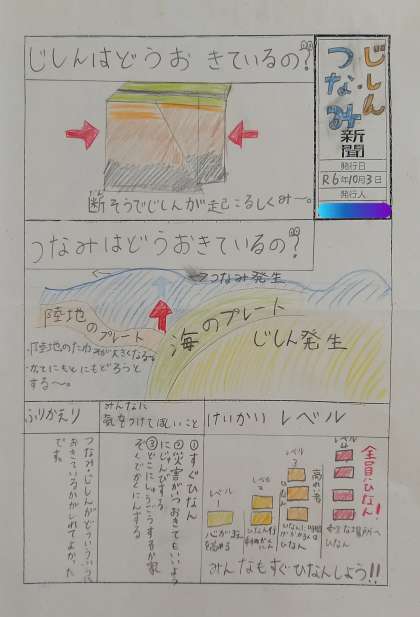 じしんはどうおきているの?
じしん
つなみ
新聞
発行日
R6年10月3日
発行人
断そうでじしんが起こるしくみ
だん
つなみはどうおきているの?
つなみ発生
陸地の
プレート
海のプレート
じしん発生
陸地の
が大きくなる。
もとにもどろうと
する
ふりかえり
つなみ・じしんがどういうふうに
おきているかがしれてよかった
です。
みんなに
気をつけてほしいこと
①すぐひなん
②災害がつおきてもいいよう
にじゅんびする
③どこにしゅうごうするか家
ぞくでかくにんする
けいかいレベル
レベル
1
心がまえ
を高める
レベル
2
ひなん行
動のかくにん
レベル
3
高れい者
ひなん
ひなんに時間
がかかる人は
ひなん
レベル
4
全員ひなん!
安全な場所へ
ひなん
みんなもすぐひなんしよう!!